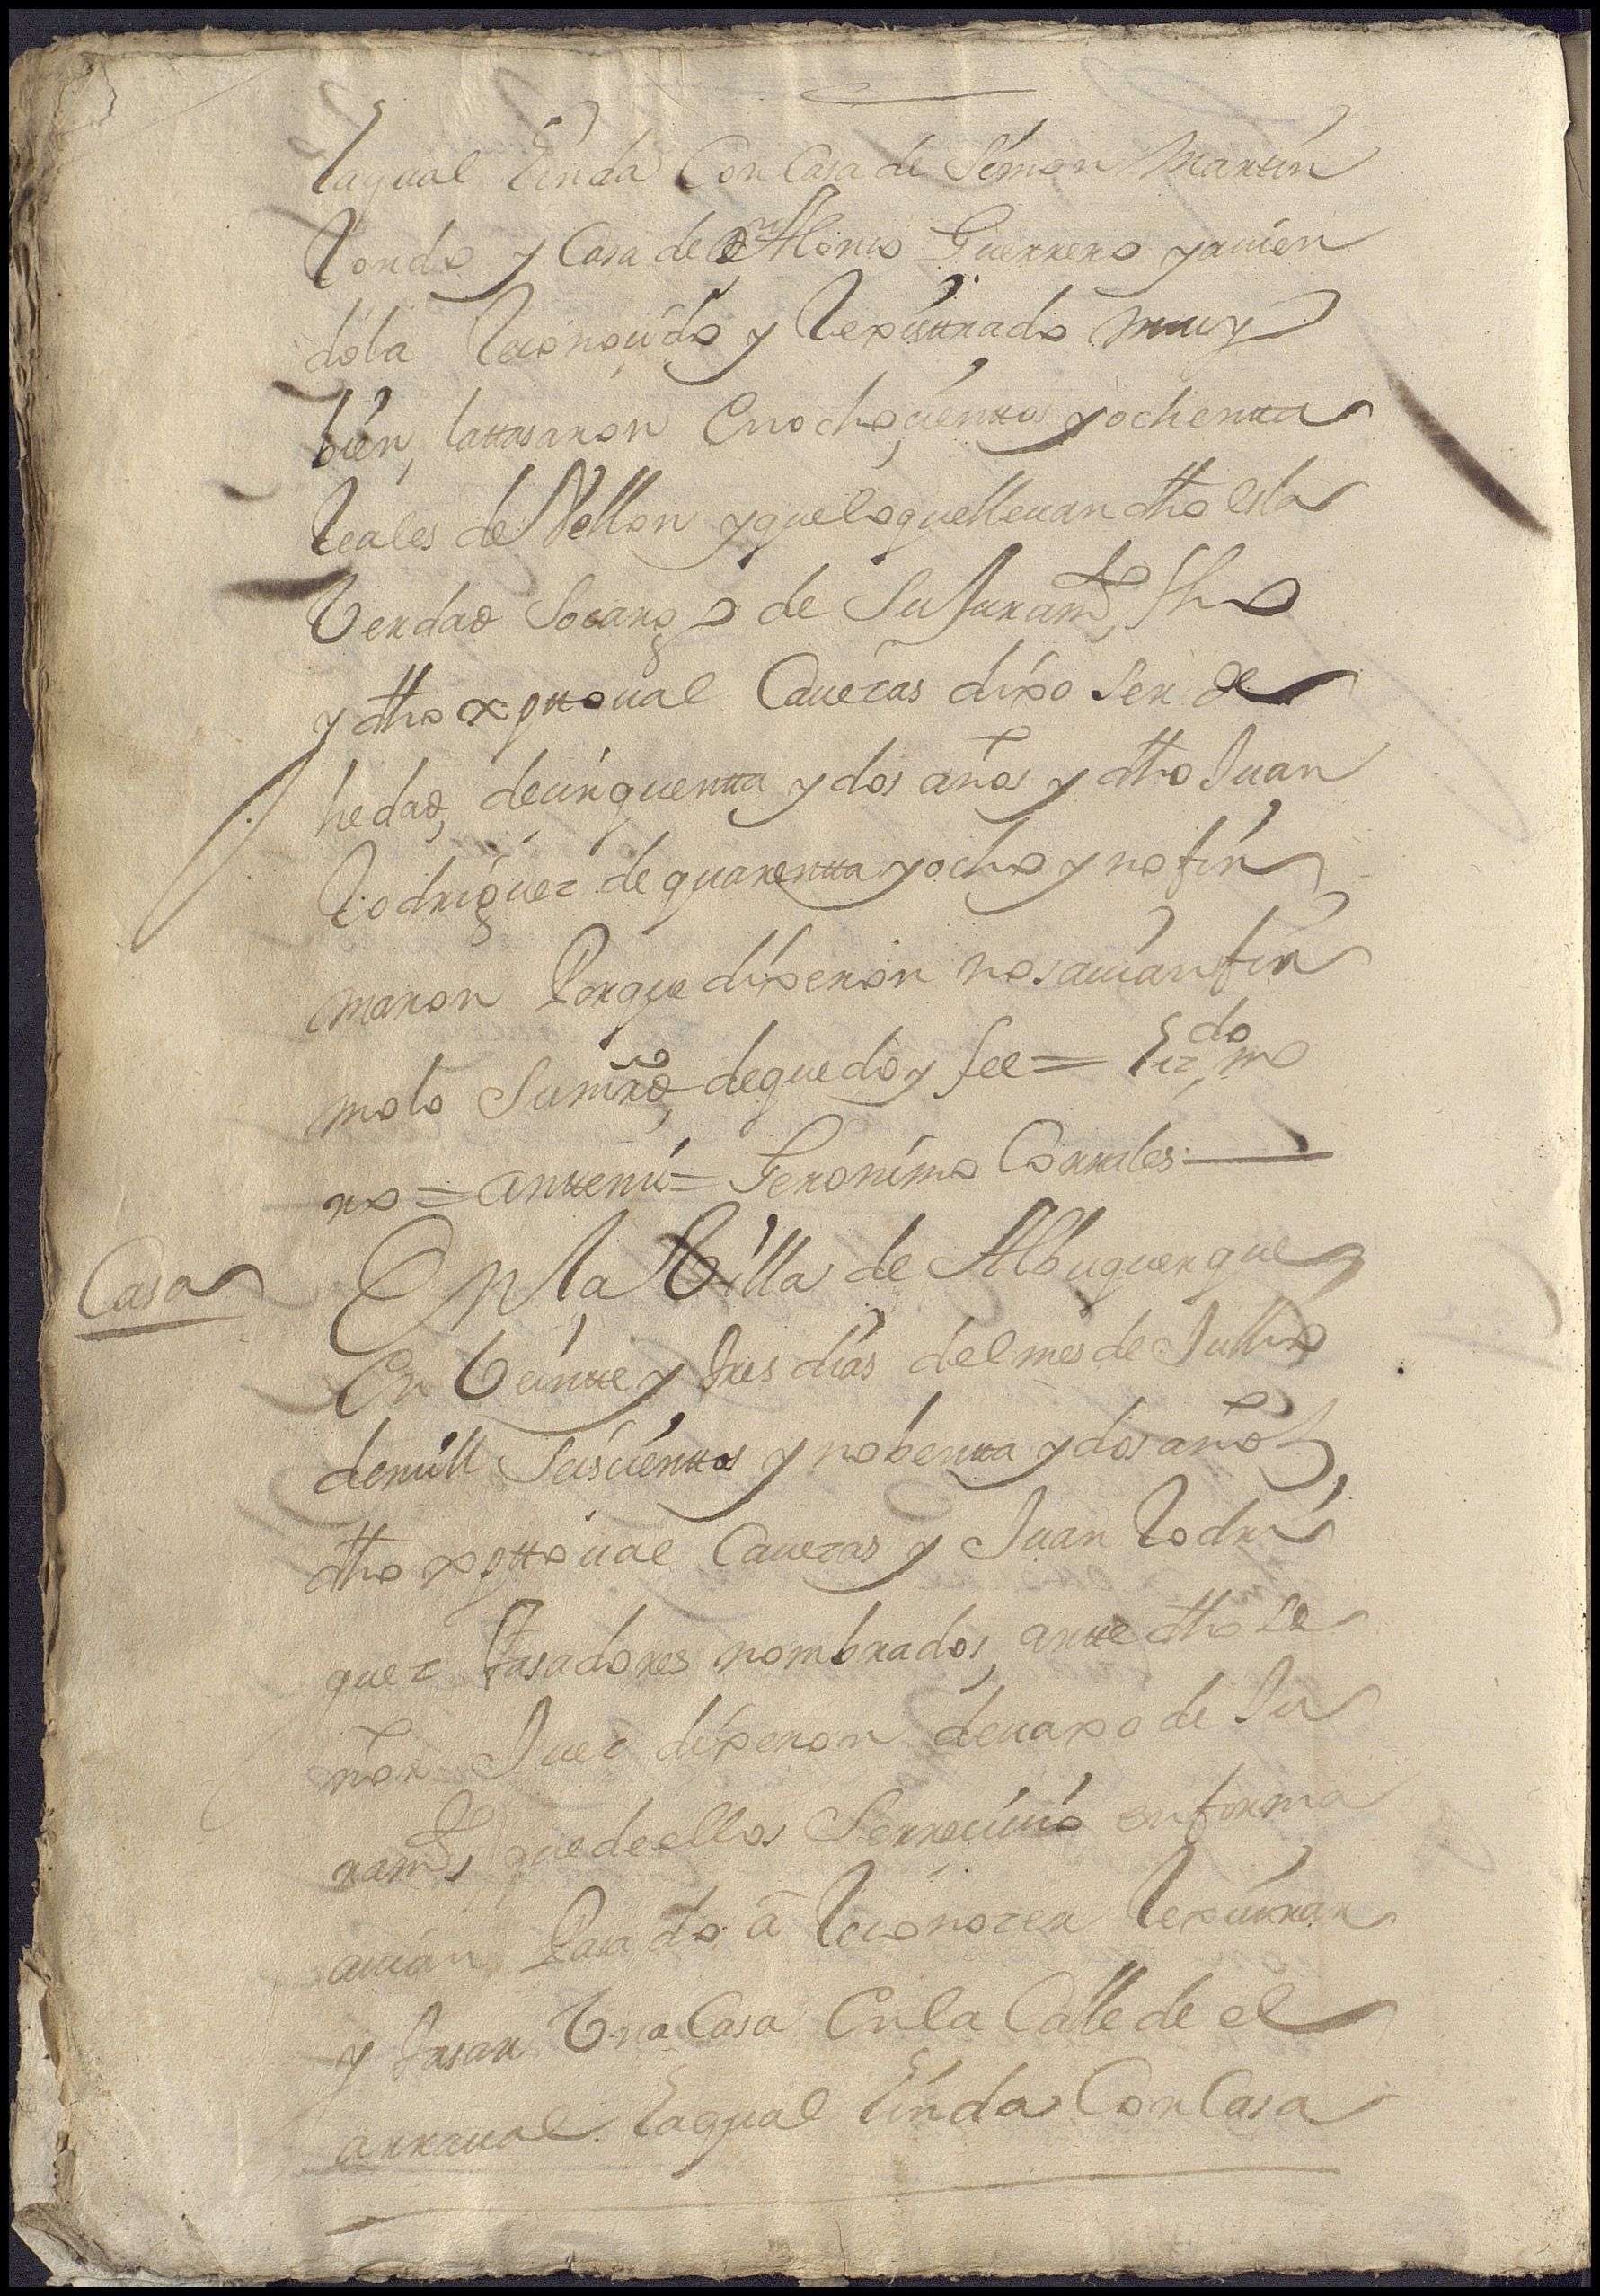 laqual linda Con Casa de Simon Martin
Rondo y Casa de Dn Alonso Guerrero yauien
dola Reconoçido y Rexistrado muy
bien, lattasaron En ochoçienttos yochentta
Reales de Vellon yqueloquelleuan dho esla
Verdad Socargo de Su Juramto, fho
y dho xpttoual Cauezas dixo Ser de
hedad, deçinquentta y dos años y dho Juan
Rodriguez de quarentta yocho y nofir
maron Porque dixeron nosauian fir
molo Sumrd, deque doy fee = Lizdo, mo
ro = anttemi = Geronimo Corrales
Casa
En la Villa de Alburquerque
En Veintte y tres dias del mes de Jullio
demill Seisçienttos y nobentta y dos años,
dho xpttoual Cauezas y Juan Rodri
guez tasadores nombrados, antte dho Se
ñor Juez dixeron deuaxo de Ju
ramto, quedeellos Serreciuio enforma
auian Pasado â Reconozer Rexistrar
y tasar Vna Casa En la Calle de el
arraual laqual linda Con Casa